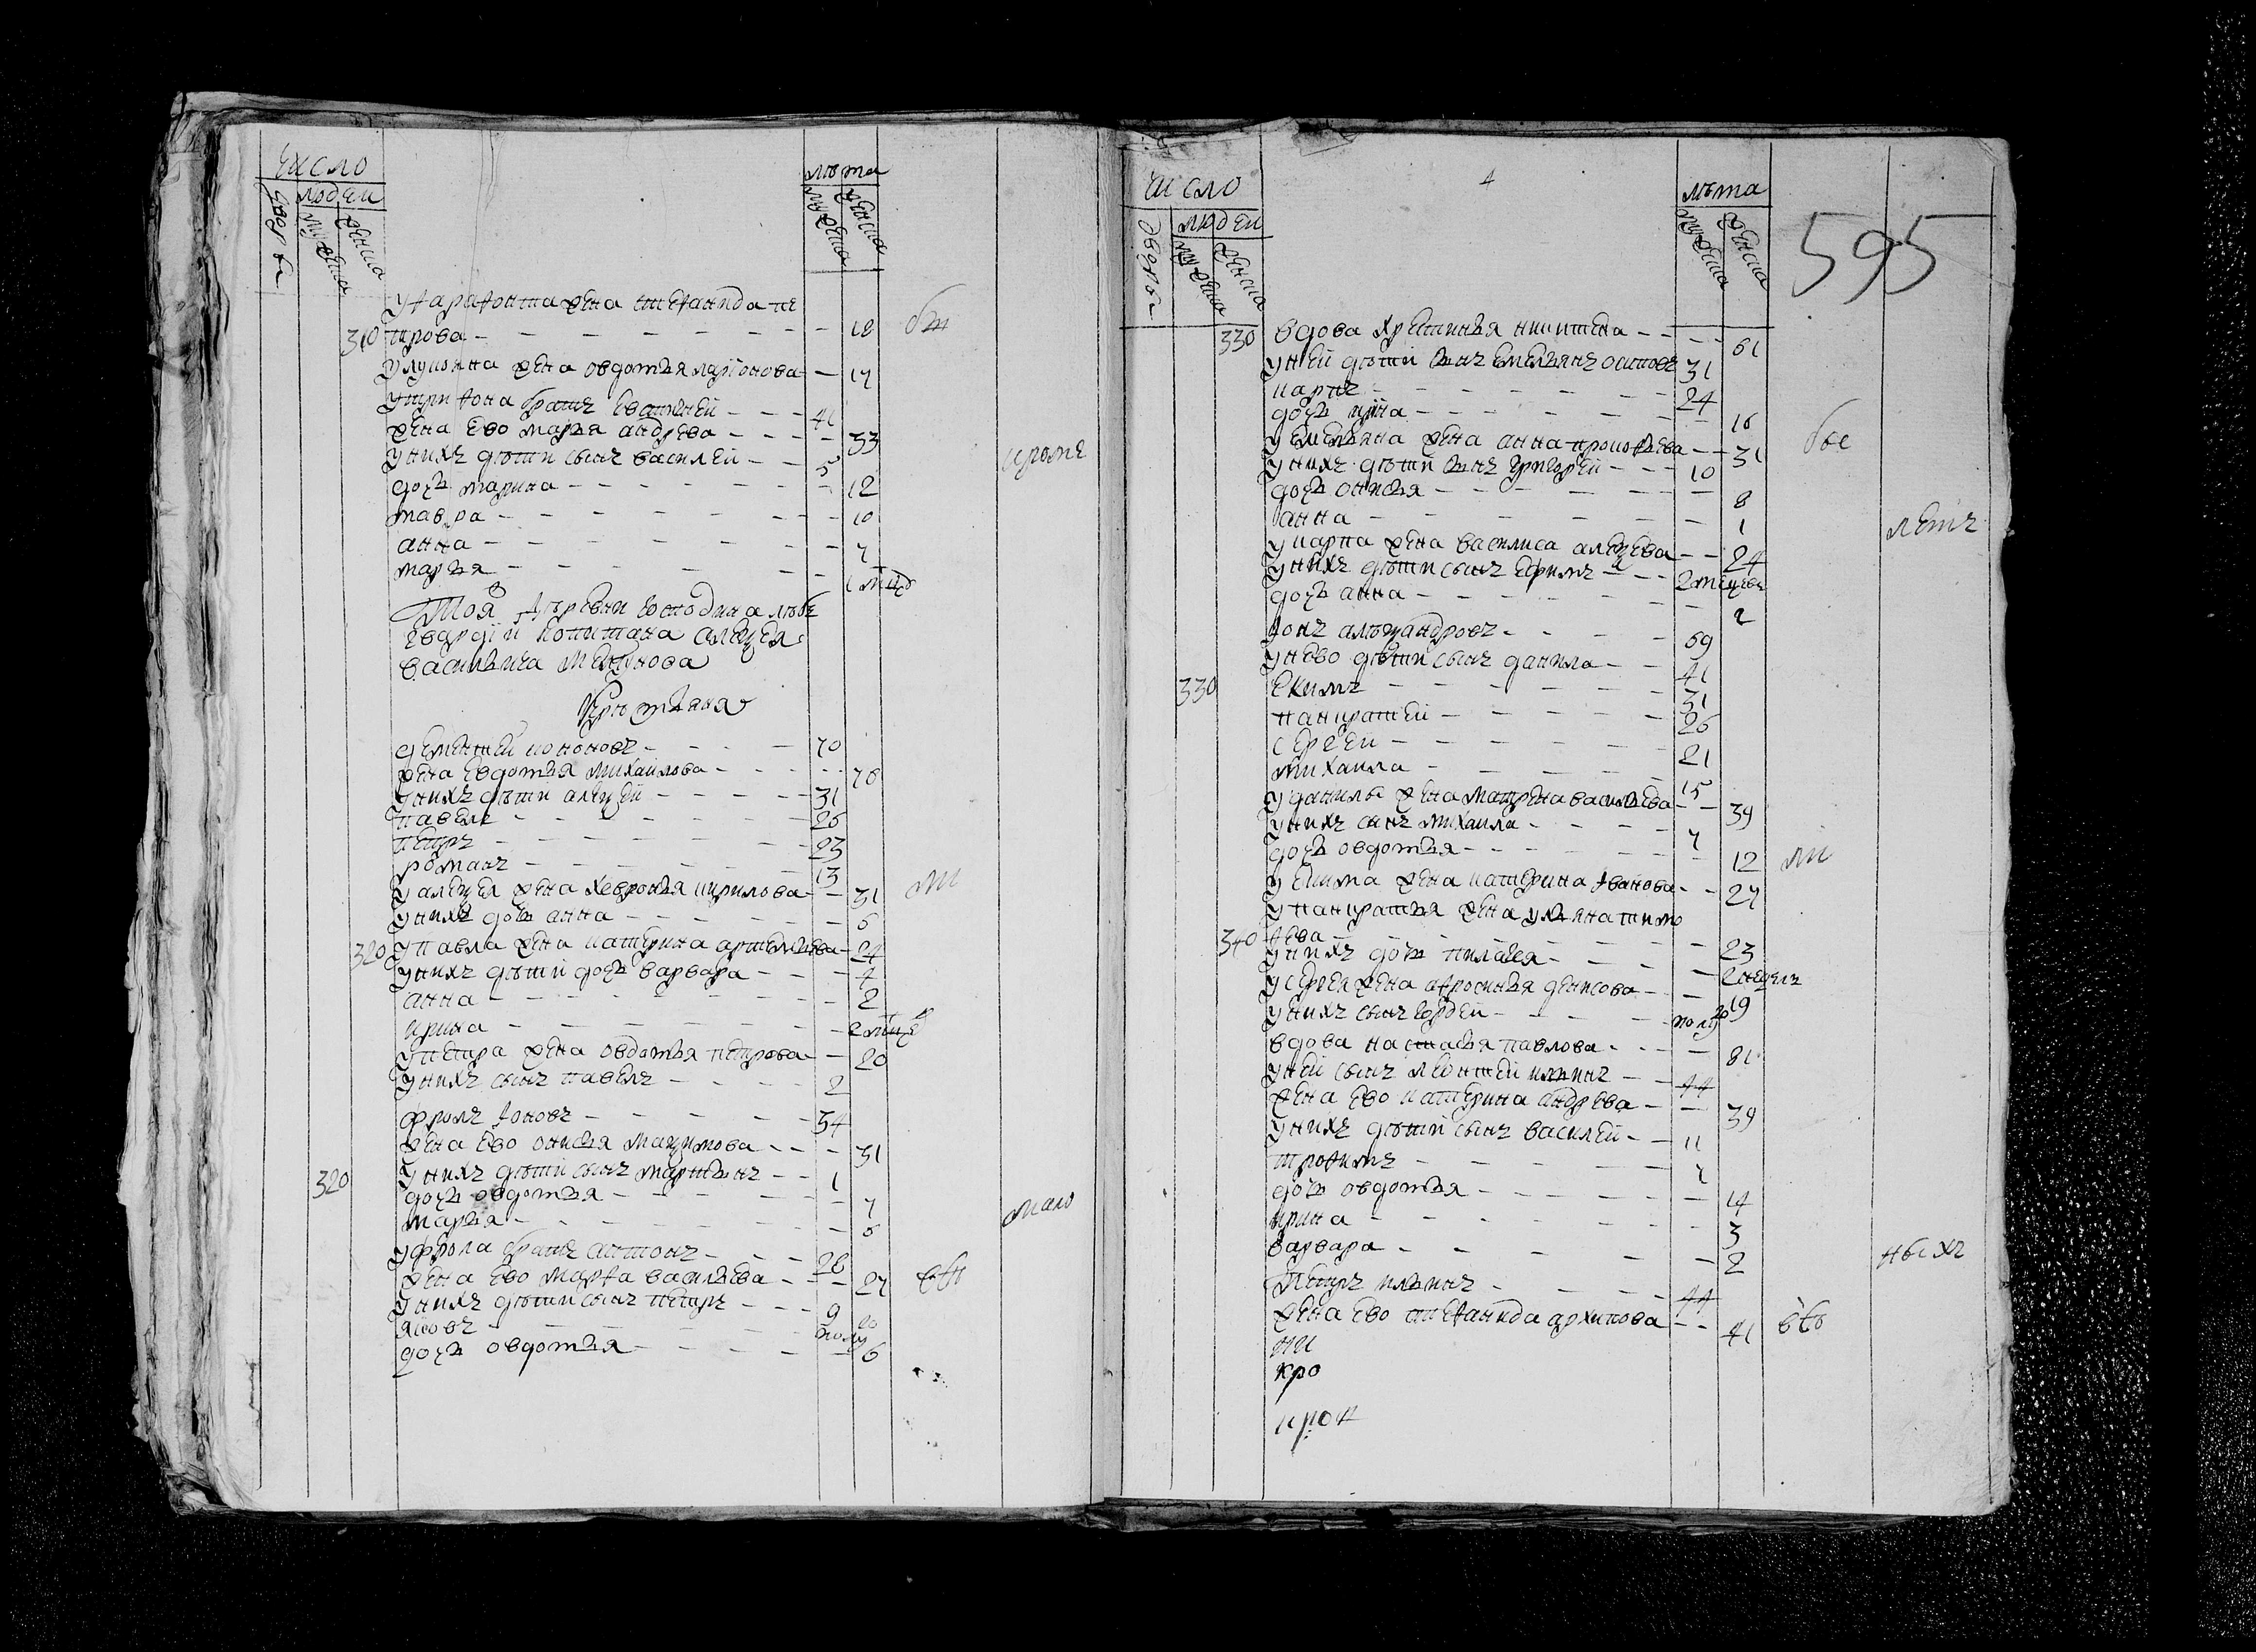 число
людеи
дворовъ
мужеска
женска
лѣта
мужеска
женска
у фарафонта жена степанида пе
310 трова — 18
у лукояна жена овдотья ларионова — 17
у трифона братъ евстигней — 41
жена ево марья андрева — 33
у нихъ дѣти сынъ василей — 5
дочь марина — 12
мавра — 10
анна — 7
марья —
Тоя ж деревни господина лѣбъ
гвардіи капитана алексея
васильича мелгунова
Крестьяня
дементей кононовъ — 70
жена евдотья михаилова — 70
у нихъ дѣти алексѣй — 31
павелъ — 26
петръ — 23
романъ — 13
у алексея жена хевронья кирилова — 31
у нихъ дочь анна — 6
320 у павла жена катерина артемьева — 24
у нихъ дѣти дочь варвара — 4
анна — 2
ирина — 2 мсце
у петра жена овдотья петрова — 20
у нихъ сынъ павелъ — 2
фролъ фоновъ — 34
жена ево онисья макимова — 31
320 у нихъ дѣти сынъ мартынъ — 1
дочь овдотья — 7
марья — 5
у фрола братъ антонъ — 28
жена ево марфа васильева — 27
у нихъ дѣти сынъ петръ — 9
яковъ — полу
дочь овдотья — 6
бы
кроме
ли
мало
число
людеи
дворовъ
мужеска
женска
4
лѣта
мужеска
женска
595
330 вдова хрестинья никитена — 61
у ней дѣти сынъ емельянъ осиповъ 31
карпъ — 24
дочь — 16
у емельяна жена анна прокофьева — 31
у нихъ дѣти сынъ григорей — 10
дочь онисья — 8
анна — 1
у карпа жена василиса алексева — 24
у нихъ дѣти сынъ ефимъ — 2 месецовъ
дочь анна — 2
фонъ алѣксандровъ — 69
у нево дѣти сынъ данила — 41
330 екимъ — 31
панкратей — 26
сергеи — 21
михаила — 15
у данилы жена матрена васильева — 39
у нихъ сынъ михаила — 7
дочь овдотья — 12
у екима жена катерина иванова — 27
у панкратья жена ульяна тимо
340 фева — 23
у нихъ дочь пилагея — 2 неделъ
у сергея жена афросинья денисова — 19
у нихъ сынъ гордей — полу го
вдова настасья павлова — 81
у ней сынъ леонтей ильинъ — 44
жена ево катерина андрева — 39
у нихъ дѣти сынъ василей — 11
трофимъ — 7
дочь овдотья — 14
ирина — 3
варвара — 2
петръ ильинъ — 44
жена ево степанида архипова — 41
ни
кро
кроп
бы
летъ
ли
ныхъ